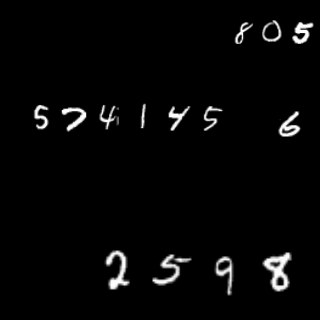 805
574145 6
2598